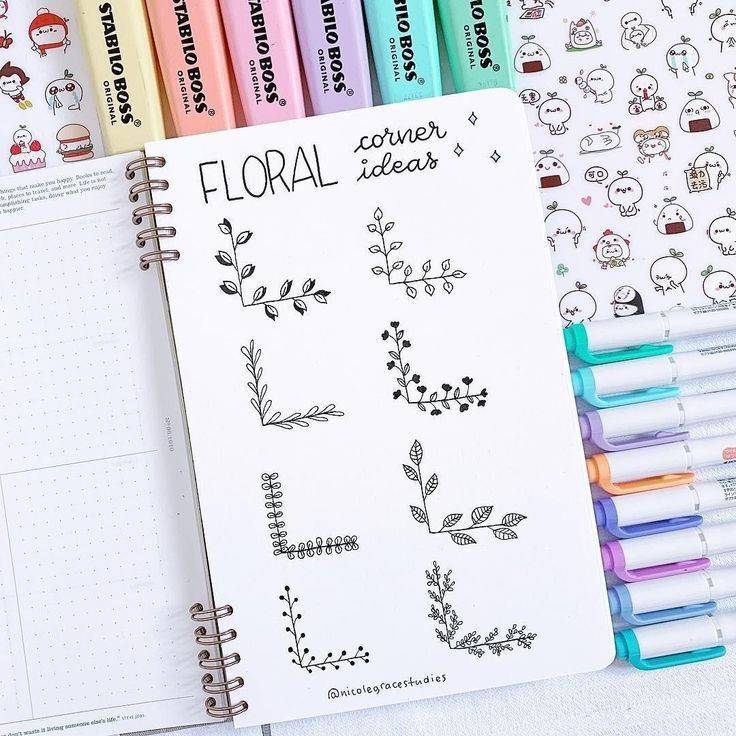 STABILO BOSS
ORIGINAL
STABILO BOSS
ORIGINAL
STABILO BOSS
ORIGINAL
STABILO BOSS
ORIGINAL
STABILO BOSS
ORIGINAL
STABILO BOSS
ORIGINAL
FLORAL corner
ideas
@nicolegracestudies
things that make you happy. Books to read,
places to travel, and more. Life is not
accomplishing tasks, doing what you enjoy
happier.
don't waste it living someone else's life."
STEVE JOBS